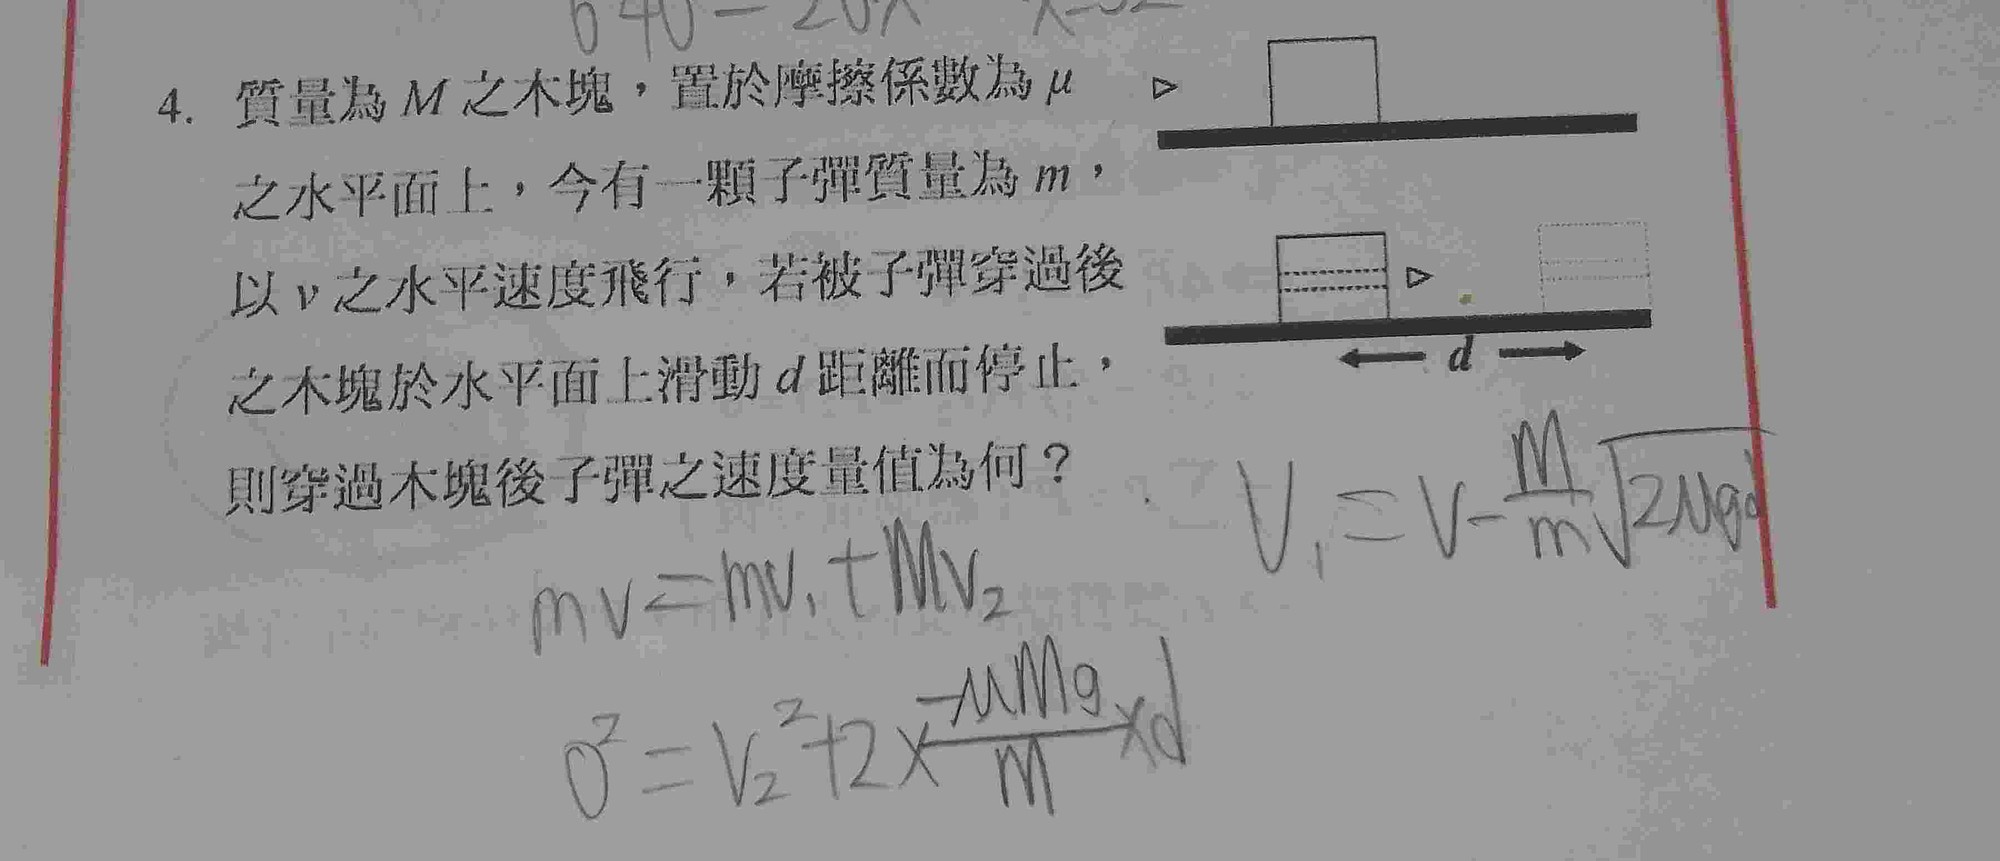 640-20x x=32
4. 質量為 M 之木塊，置於摩擦係數為 μ
之水平面上，今有一顆子彈質量為 m，
以 v 之水平速度飛行，若被子彈穿過後
之木塊於水平面上滑動 d 距離而停止，
則穿過木塊後子彈之速度量值為何？
d
V₁ = V - M/m √2μgd
mv = mv₁ + Mv₂
0² = V₂² + 2 × -μMg/M × d